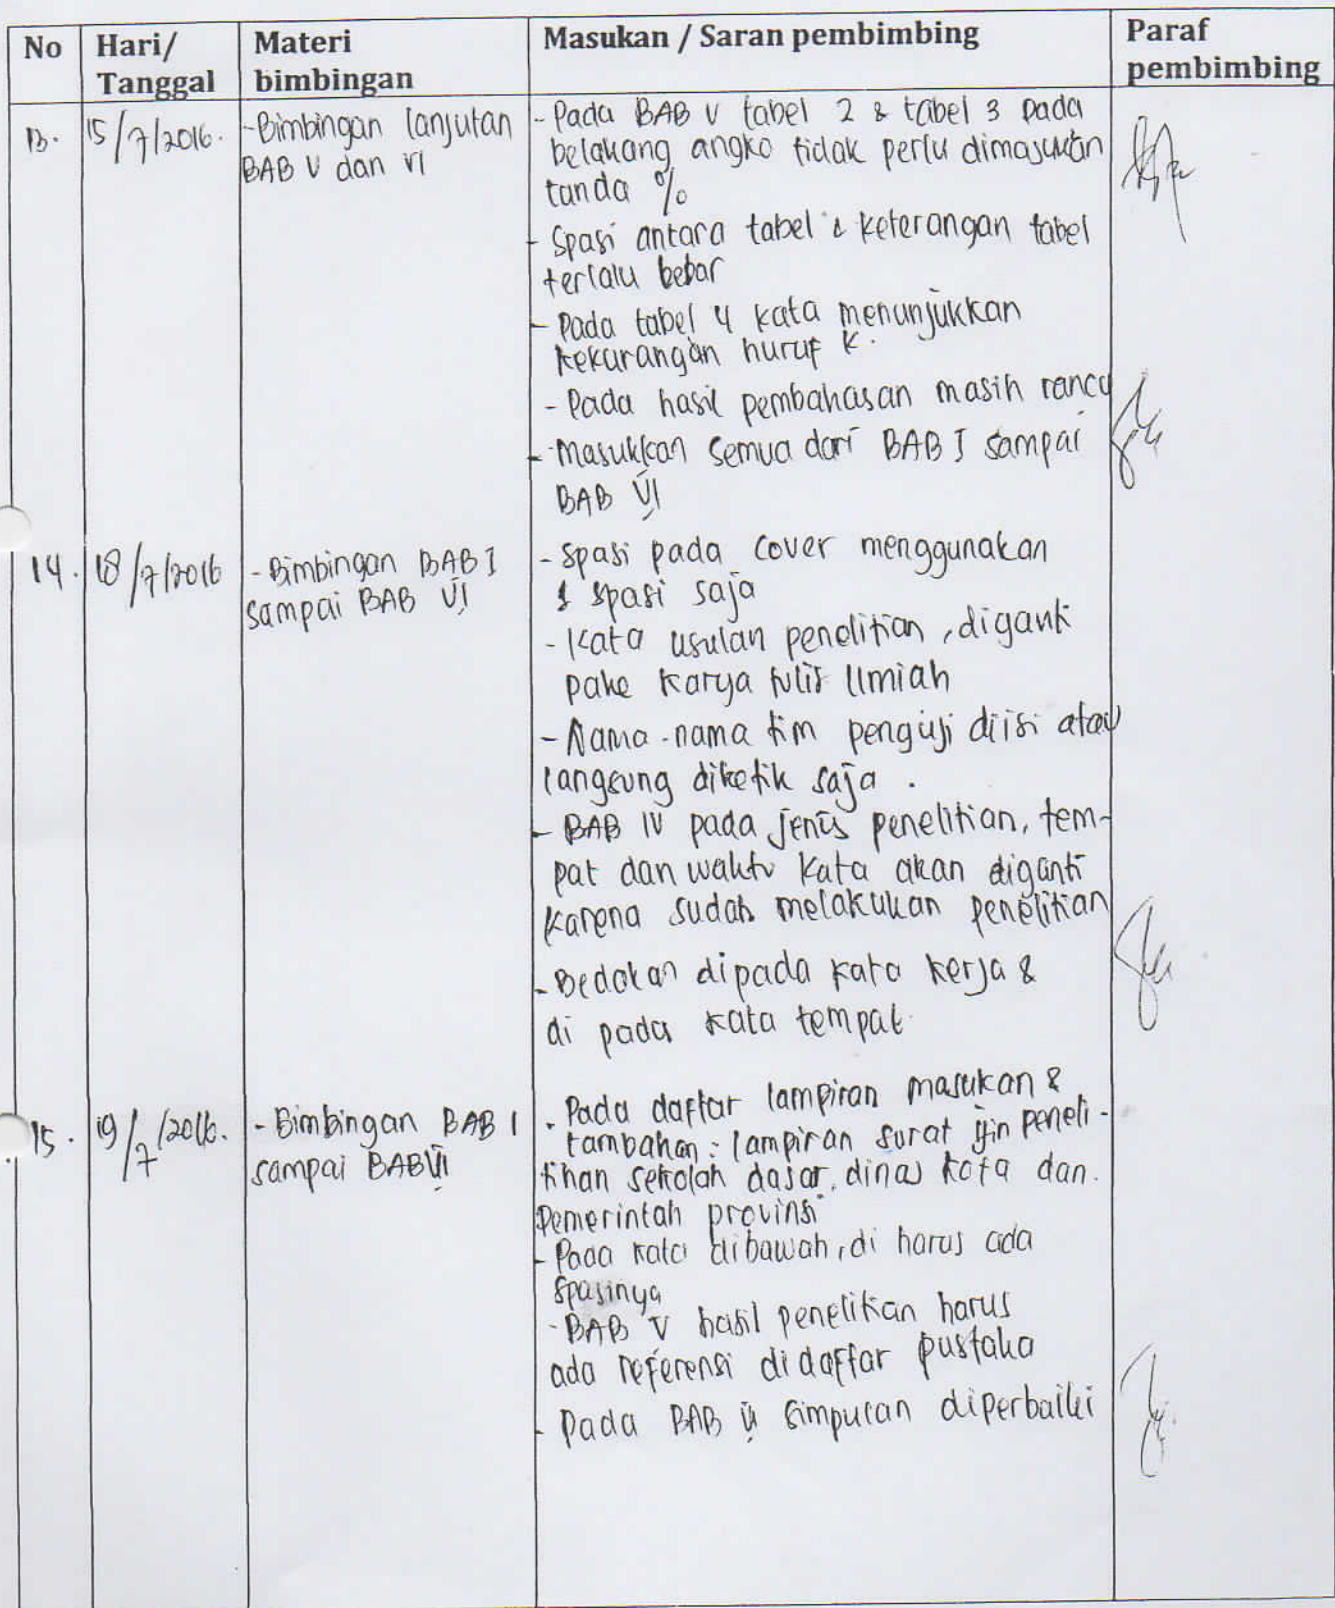 No Hari/ Tanggal Materi bimbingan Masukan / Saran pembimbing Paraf pembimbing
13. 15/7/2016. -Bimbingan lanjutan
BAB V dan VI
- Pada BAB V tabel 2 & tabel 3 pada
belakang angka tidak perlu dimasukan
tanda %
- Spasi antara tabel & keterangan tabel
terlalu bebar
- Pada tabel 4 kata menunjukkan
kekurangan huruf K.
- Pada hasil pembahasan masih rancu
- Masukkan semua dari BAB I sampai
BAB VI
14. 18/7/2016 - Bimbingan BAB I
sampai BAB VI
- Spasi pada cover menggunakan
1 spasi saja
- Kata usulan penelitian, diganti
pake karya tulis ilmiah
- Nama-nama tim penguji diisi atau
langsung diketik saja.
- BAB IV pada jenis penelitian, tem-
pat dan waktu kata akan diganti
karena sudah melakukan penelitian
- Bedakan dipada kata kerja &
di pada kata tempat
15. 19/7/2016. - Bimbingan BAB I
sampai BAB VI
- Pada daftar lampiran masukan &
tambahan : lampiran surat ijin peneli-
tihan sekolah dasar, dinas kota dan.
Pemerintah provinsi
- Pada kata dibawah, di harus ada
spasinya
- BAB V hasil penelitian harus
ada referensi didaftar pustaka
- Pada BAB VI simpulan diperbaiki